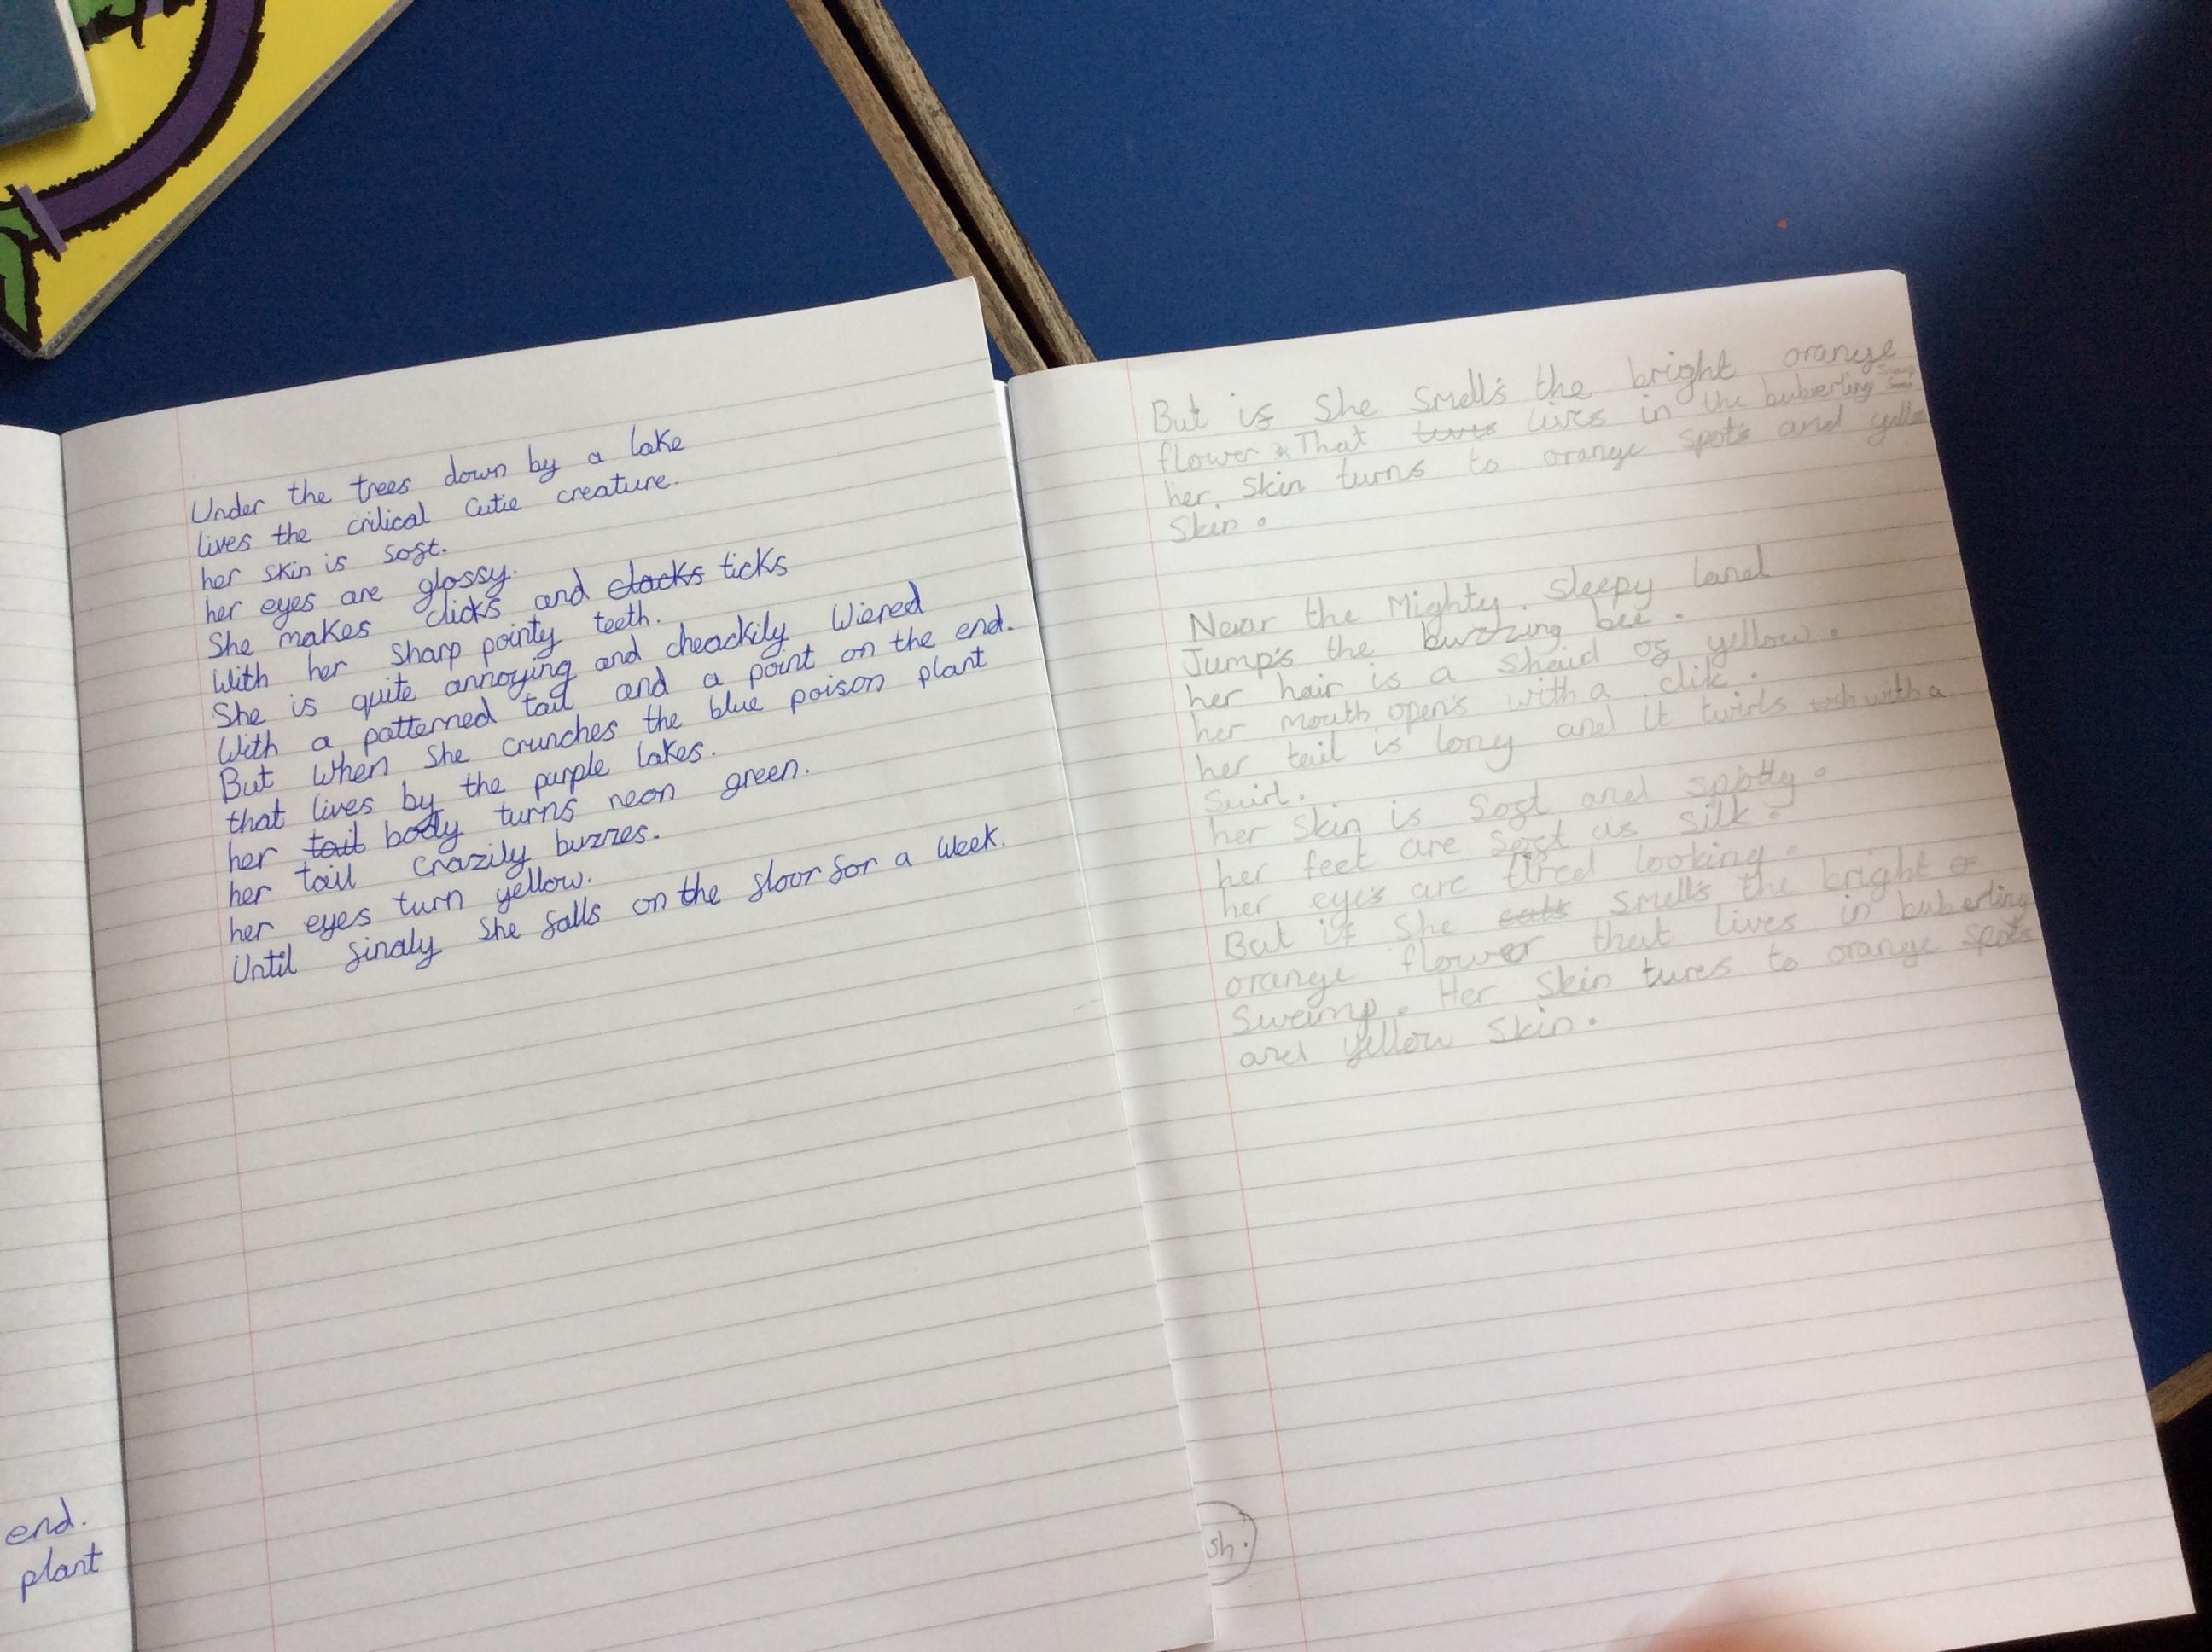 Under the trees down by a lake
lives the critical cutie creature.
her skin is soft.
her eyes are glossy.
She makes clicks and clacks ticks
With her sharp pointy teeth.
She is quite annoying and cheackily Wiered
With a patterned tail and a point on the end.
But when she crunches the blue poison plant
that lives by the purple lakes.
her tail body turns neon green.
her tail crazily buzzes.
her eyes turn yellow.
Until finaly she falls on the floor for a week.
end.
plant
But if She Smell's the bright orange
flower That lives in the buberling
her skin turns to orange spots and yellow
Skin.
Near the Mighty. Sleepy land
Jump's the buzzing bee.
her hair is a sheid of yellow.
her mouth open's with a clik.
her tail is long and it twirls with a
Swirl.
her skin is soft and spotty.
her feet are soft as silk.
her eye's are tired looking.
But if She eats smells the bright
orange flower that lives in buberling
Swamp. Her Skin tures to orange spots
and yellow skin.
sh.